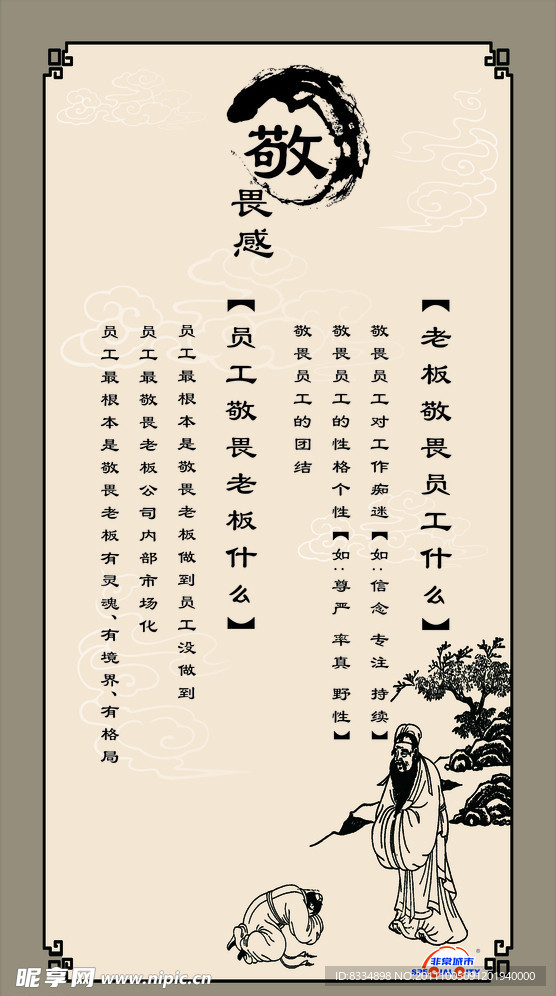 敬
畏感
【老板敬畏员工什么】
敬畏员工对工作痴迷【如:信念 专注 持续】
敬畏员工的性格个性【如:尊严 率真 野性】
敬畏员工的团结
【员工敬畏老板什么】
员工最根本是敬畏老板做到员工没做到
员工最敬畏老板公司内部市场化
员工最根本是敬畏老板有灵魂、有境界、有格局
非常城市
SPECIAL CITY
昵享网 www.nipic.cn